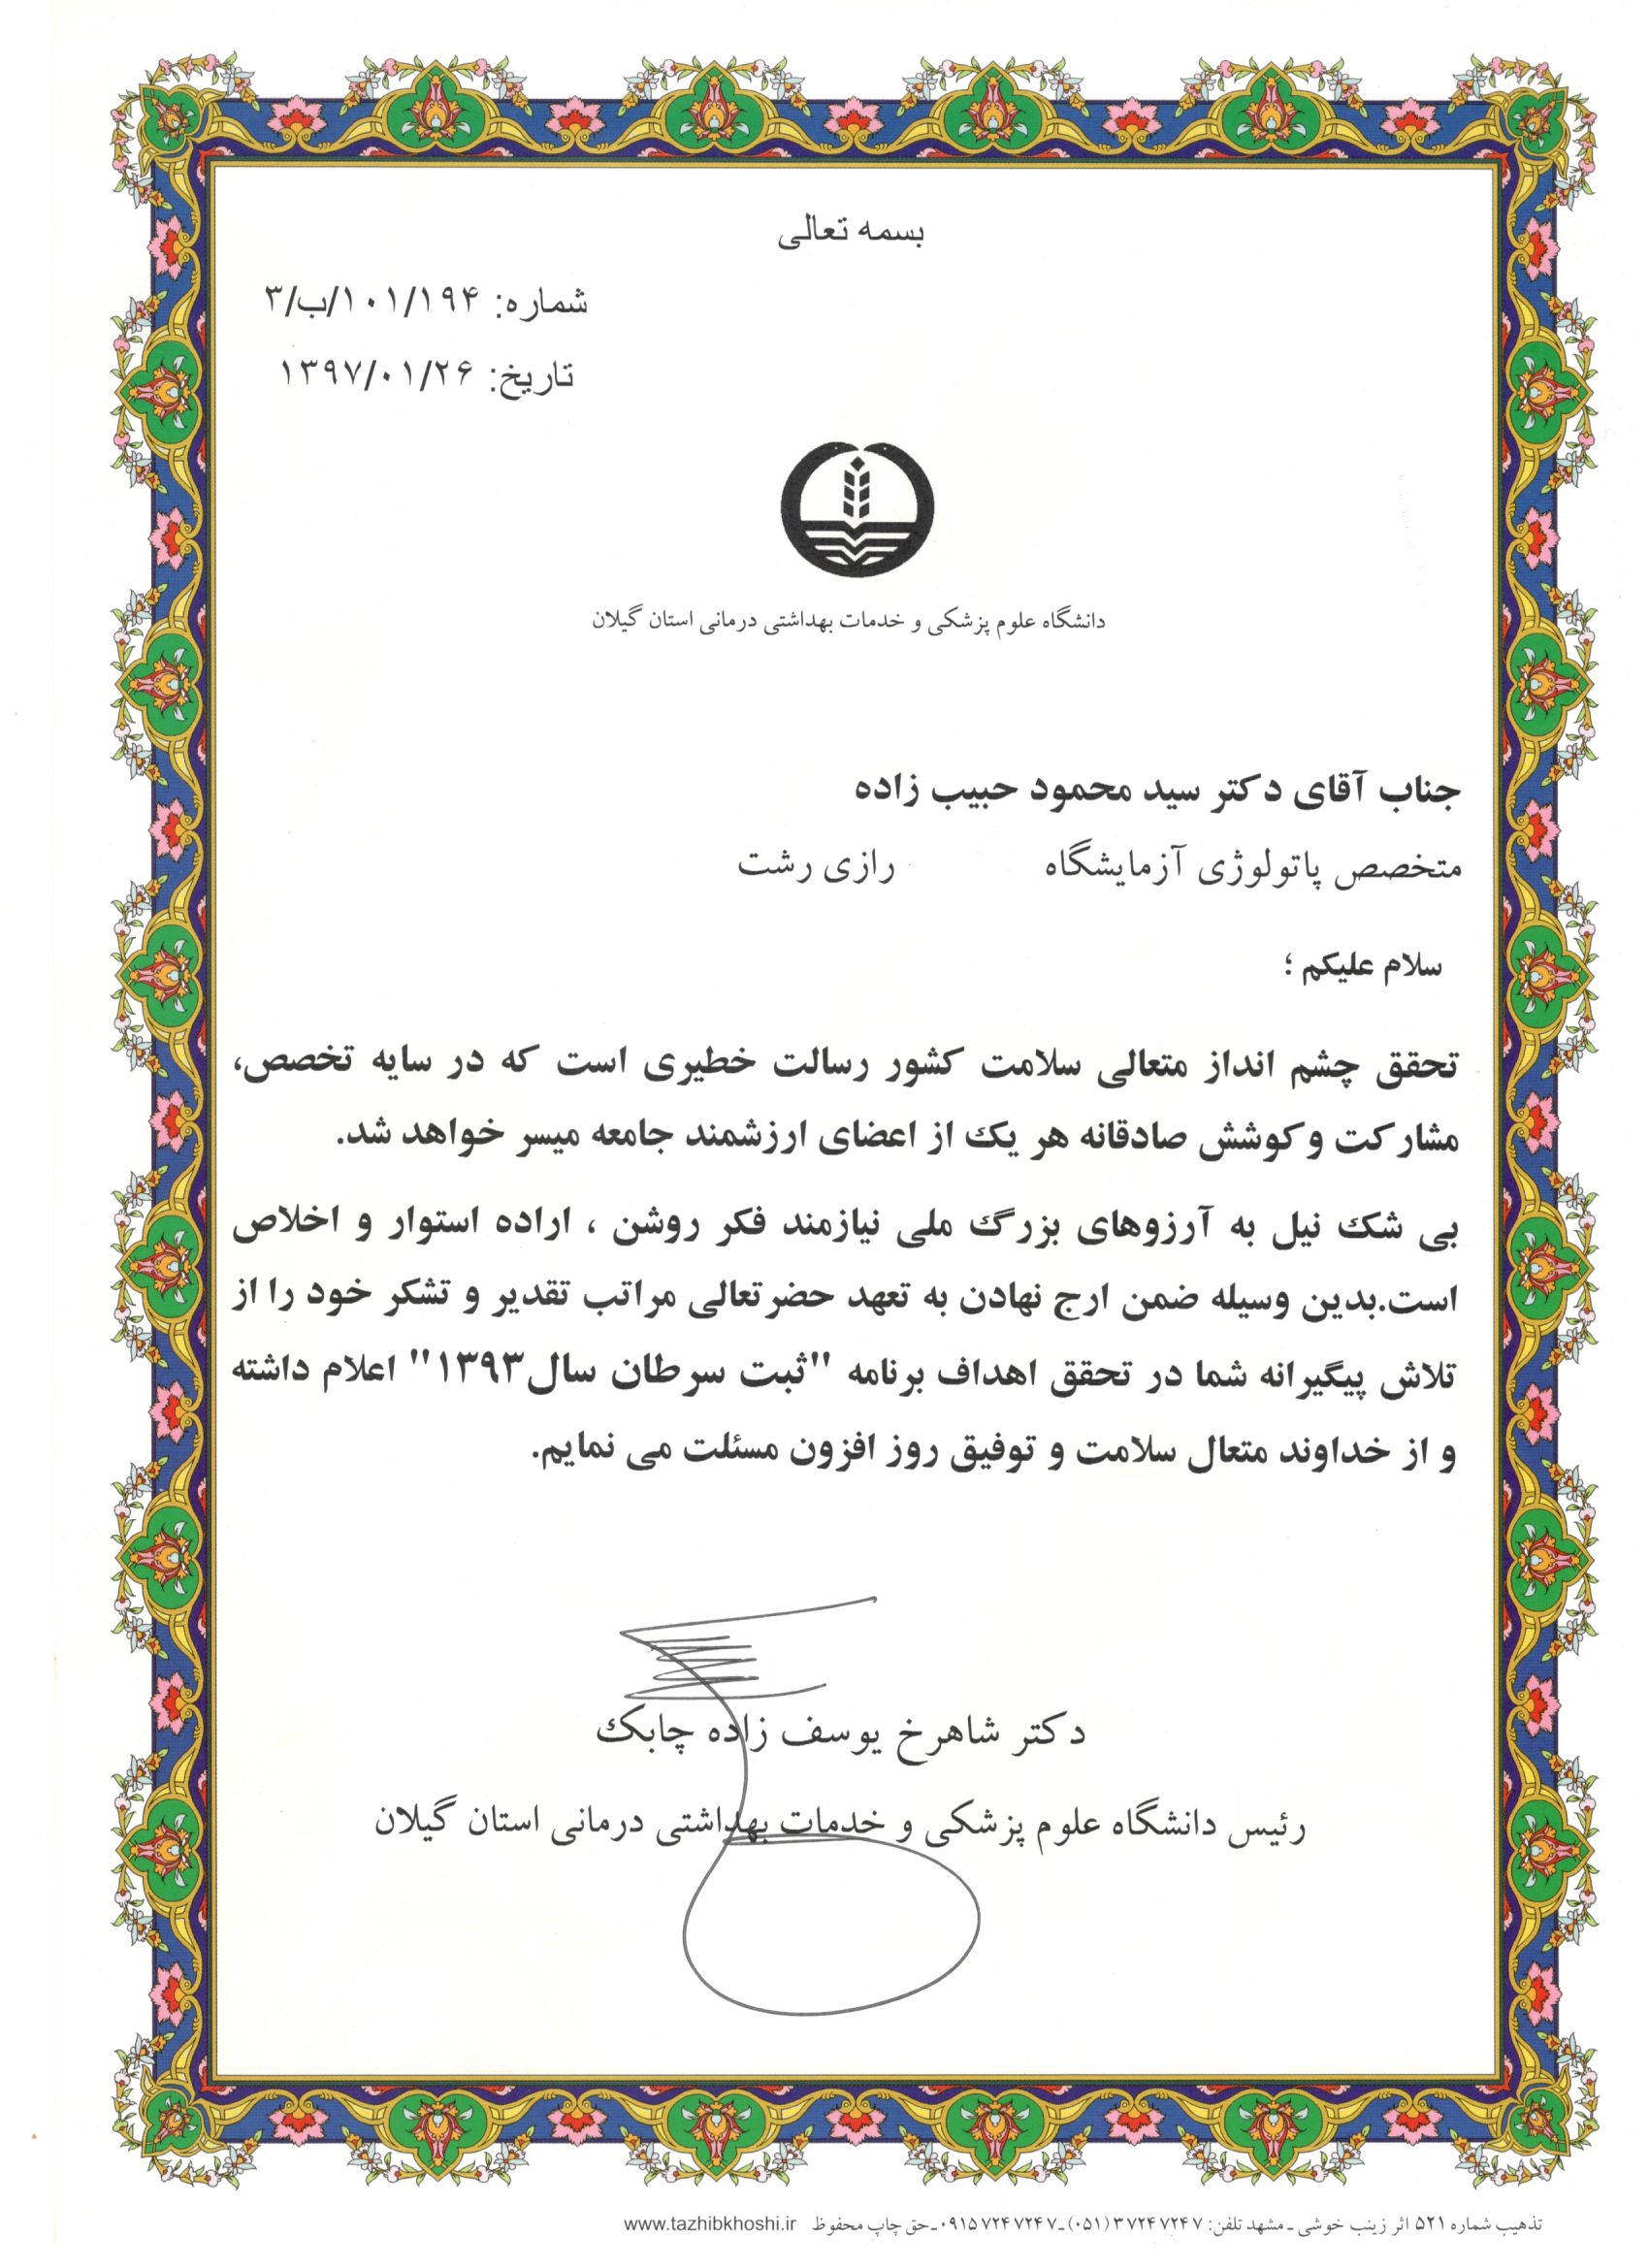 بسمه تعالی
شماره: ۳/ب/۱۰۱/۱۹۴
تاریخ: ۱۳۹۷/۰۱/۲۶
دانشگاه علوم پزشکی و خدمات بهداشتی درمانی استان گیلان
جناب آقای دکتر سید محمود حبیب زاده
متخصص پاتولوژی آزمایشگاه رازی رشت
سلام علیکم ؛
تحقق چشم انداز متعالی سلامت کشور رسالت خطیری است که در سایه تخصص،
مشارکت و کوشش صادقانه هر یک از اعضای ارزشمند جامعه میسر خواهد شد.
بی شک نیل به آرزوهای بزرگ ملی نیازمند فکر روشن ، اراده استوار و اخلاص
است.بدین وسیله ضمن ارج نهادن به تعهد حضرتعالی مراتب تقدیر و تشکر خود را از
تلاش پیگیرانه شما در تحقق اهداف برنامه "ثبت سرطان سال۱۳۹۳" اعلام داشته
و از خداوند متعال سلامت و توفیق روز افزون مسئلت می نمایم.
دکتر شاهرخ یوسف زاده چابک
رئیس دانشگاه علوم پزشکی و خدمات بهداشتی درمانی استان گیلان
تذهیب شماره ۵۲۱ اثر زینب خوشی ـ مشهد تلفن: ۳۷۲۴۷۲۴۷ (۰۵۱)ـ۰۹۱۵۷۲۴۷۲۴۷ـ حق چاپ محفوظ www.tazhibkhoshi.ir